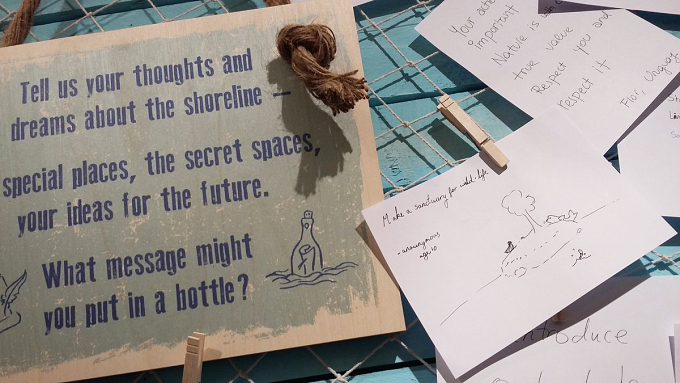 Tell us your thoughts and
dreams about the shoreline –
special places, the secret spaces,
your ideas for the future.
What message might
you put in a bottle?
Your
important
Nature is
true value
Respect you and
respect it
Flor, Uruguay
Make a sanctuary for wild-life
- anonymous
age 10
introduce